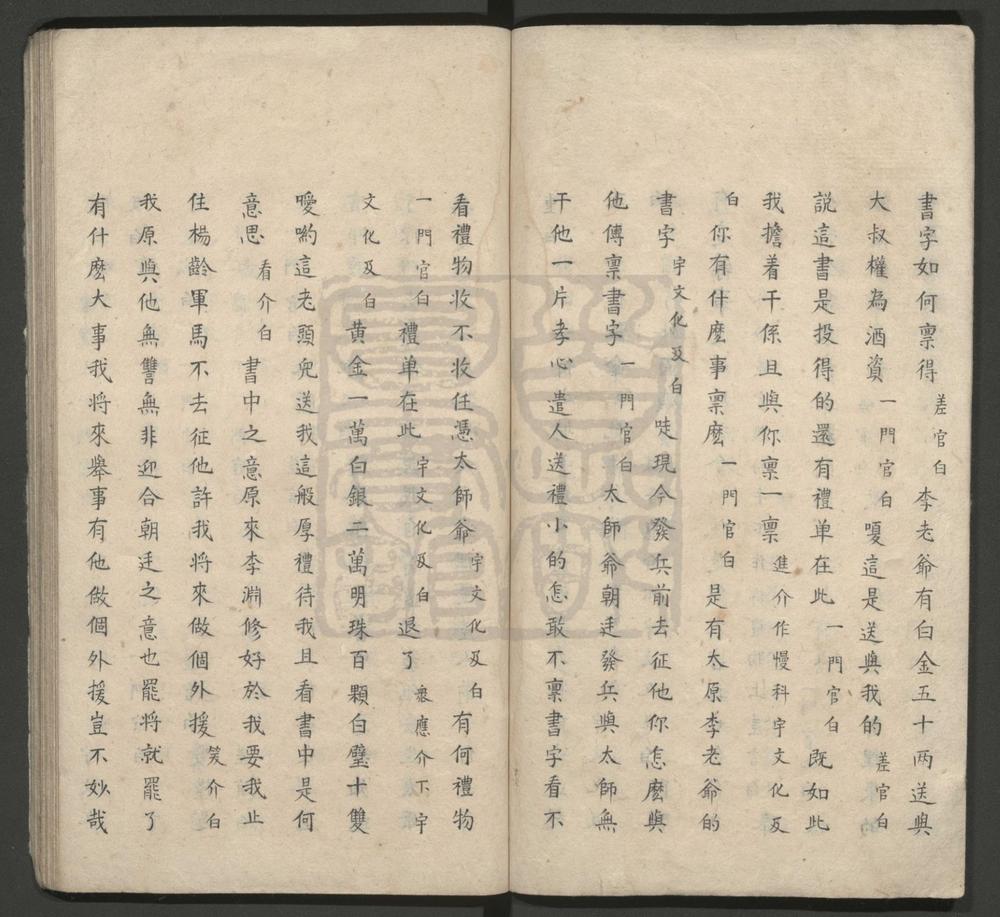 書字如何禀得差官白李老爺有白金五十两送與
大叔權為酒資一門官白嗄這是送與我的差官白
説這書是投得的還有禮单在此一門官白既如此
我擔着干係且與你禀一禀進介作慢科宇文化及
白你有什麽事禀麽一門官白是有太原李老爺的
書字宇文化及白哫現今發兵前去征他你怎麽與
他傳禀書字一門官白太師爺朝廷發兵與太師無
干他一片孝心遣人送禮小的怎敢不禀書字看不
看禮物收不收任憑太師爺宇文化及白有何禮物
一門官白禮单在此宇文化及白退了衆應介下宇
文化及白黄金一萬白銀二萬明珠百顆白璧十雙
噯喲這老頭兒送我這般厚禮待我且看書中是何
意思看介白書中之意原來李淵修好於我要我止
住楊齡軍馬不去征他許我將來做個外援笑介白
我原與他無讐無非迎合朝廷之意也罷將就罷了
有什麽大事我將來舉事有他做個外援豈不妙哉